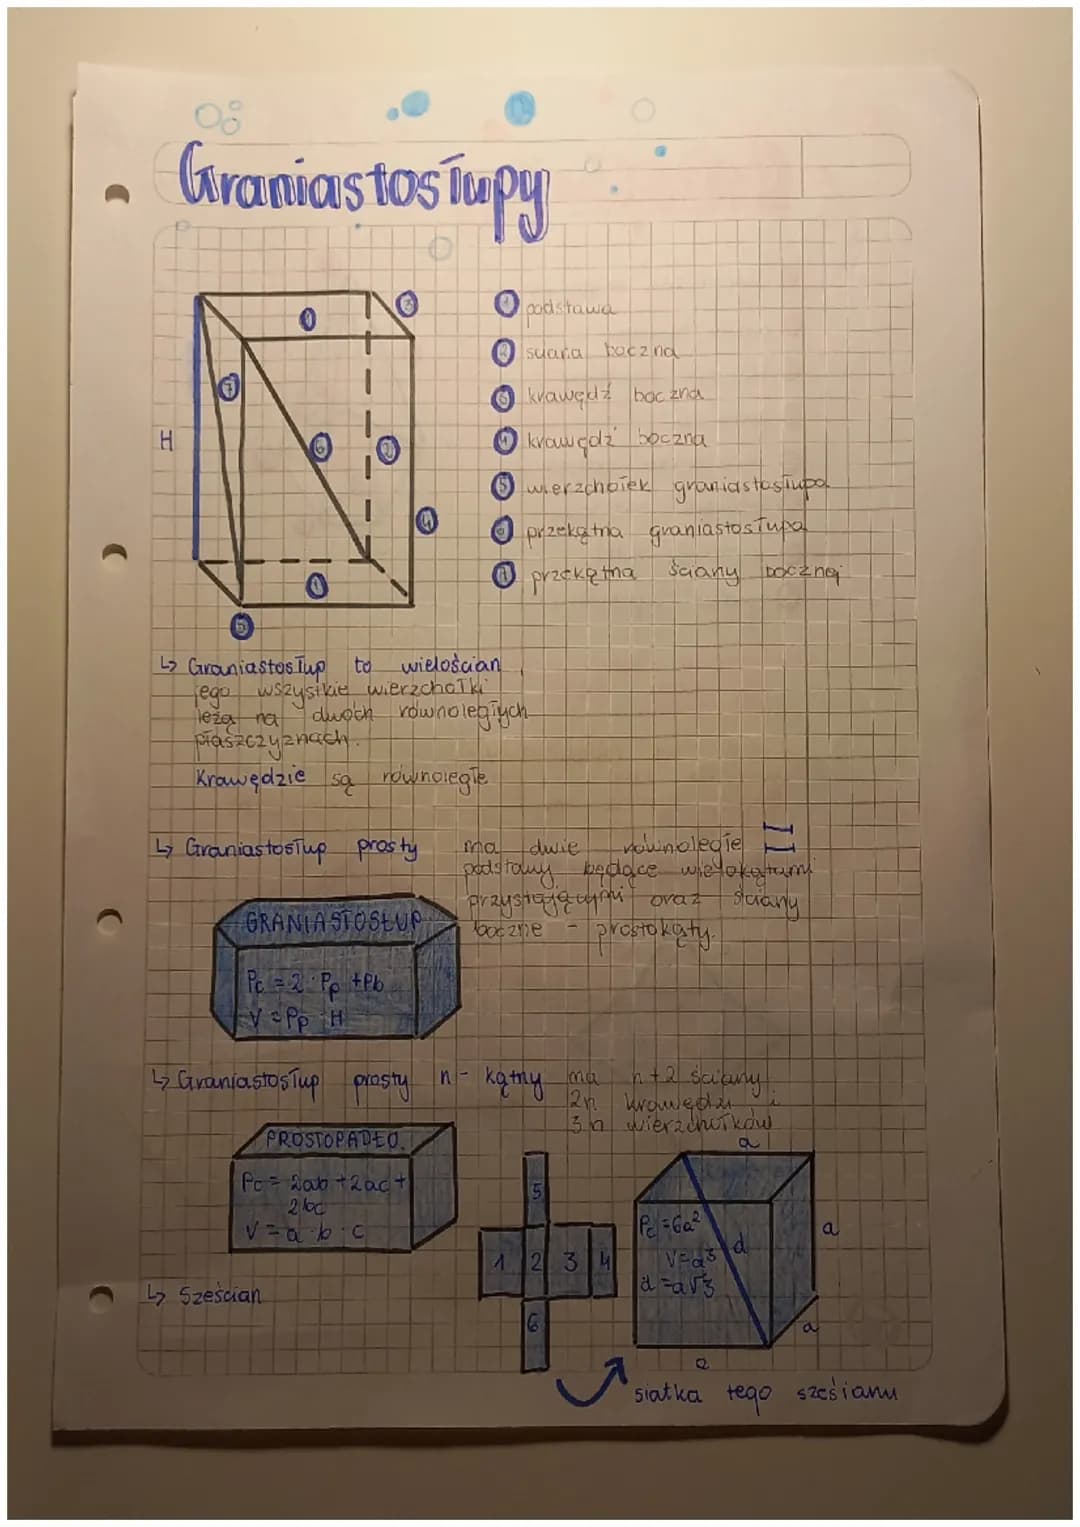 Graniastosłupy
H
1 podstawa
2 sciana boczna
3 krawędź boczna
4 krawędź boczna
5 wierzchołek graniastosłupa
6 przekątna graniastosłupa
7 przekątna ściany bocznej
1
3
7
6
2
4
1
5
↳ Graniastosłup to wielościan,
jego wszystkie wierzchołki
leżą na dwóch równoległych
płaszczyznach.
Krawędzie są równoległe
↳ Graniastosłup prosty ma dwie równoległe
podstawy będące wielokątami
przystającymi oraz ściany
boczne - prostokąty.
GRANIASTOSŁUP
Pc = 2 · Pp + Pb
V = Pp · H
↳ Graniastosłup prosty n - kątny ma n+2 ściany
2n krawędzi i
3n wierzchołków
PROSTOPADŁO.
Pc = 2ab + 2ac +
2bc
V = a · b · c
↳ Sześcian
5
1 2 3 4
6
a
Pc = 6a²
V = a³
d = a√3
d
a
a
a
siatka tego sześcianu